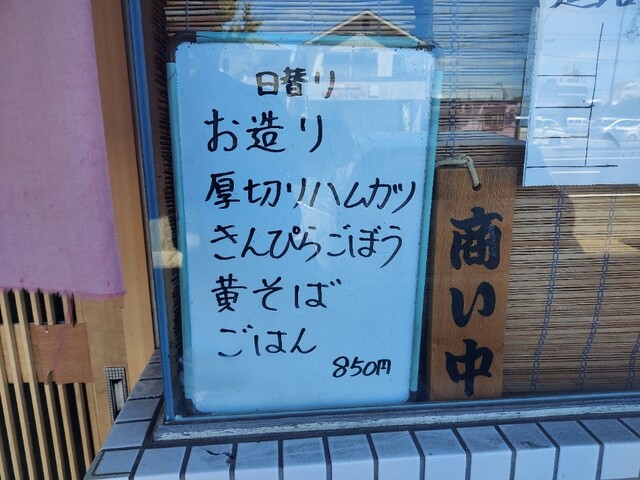 日替り
お造り
厚切りハムカツ
きんぴらごぼう
黄そば
ごはん
850円
商い中